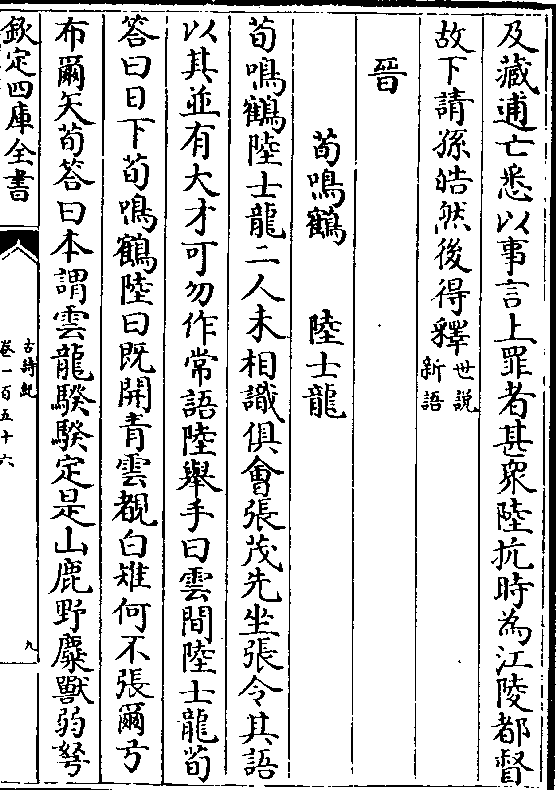 及藏逋亡悉以事言上罪者甚衆陸抗時為江陵都督
故下請孫皓然後得釋世説新語
晉
荀鳴鶴　陸士龍
荀鳴鶴陸士龍二人未相識俱會張茂先坐張令其語
以其並有大才可勿作常語陸舉手曰雲間陸士龍荀
答曰日下荀鳴鶴陸曰既開青雲覩白雉何不張爾弓
布爾矢荀答曰本謂雲龍騤騤定是山鹿野麋獸弱弩
欽定四庫全書
古詩紀
卷一百五十六
九